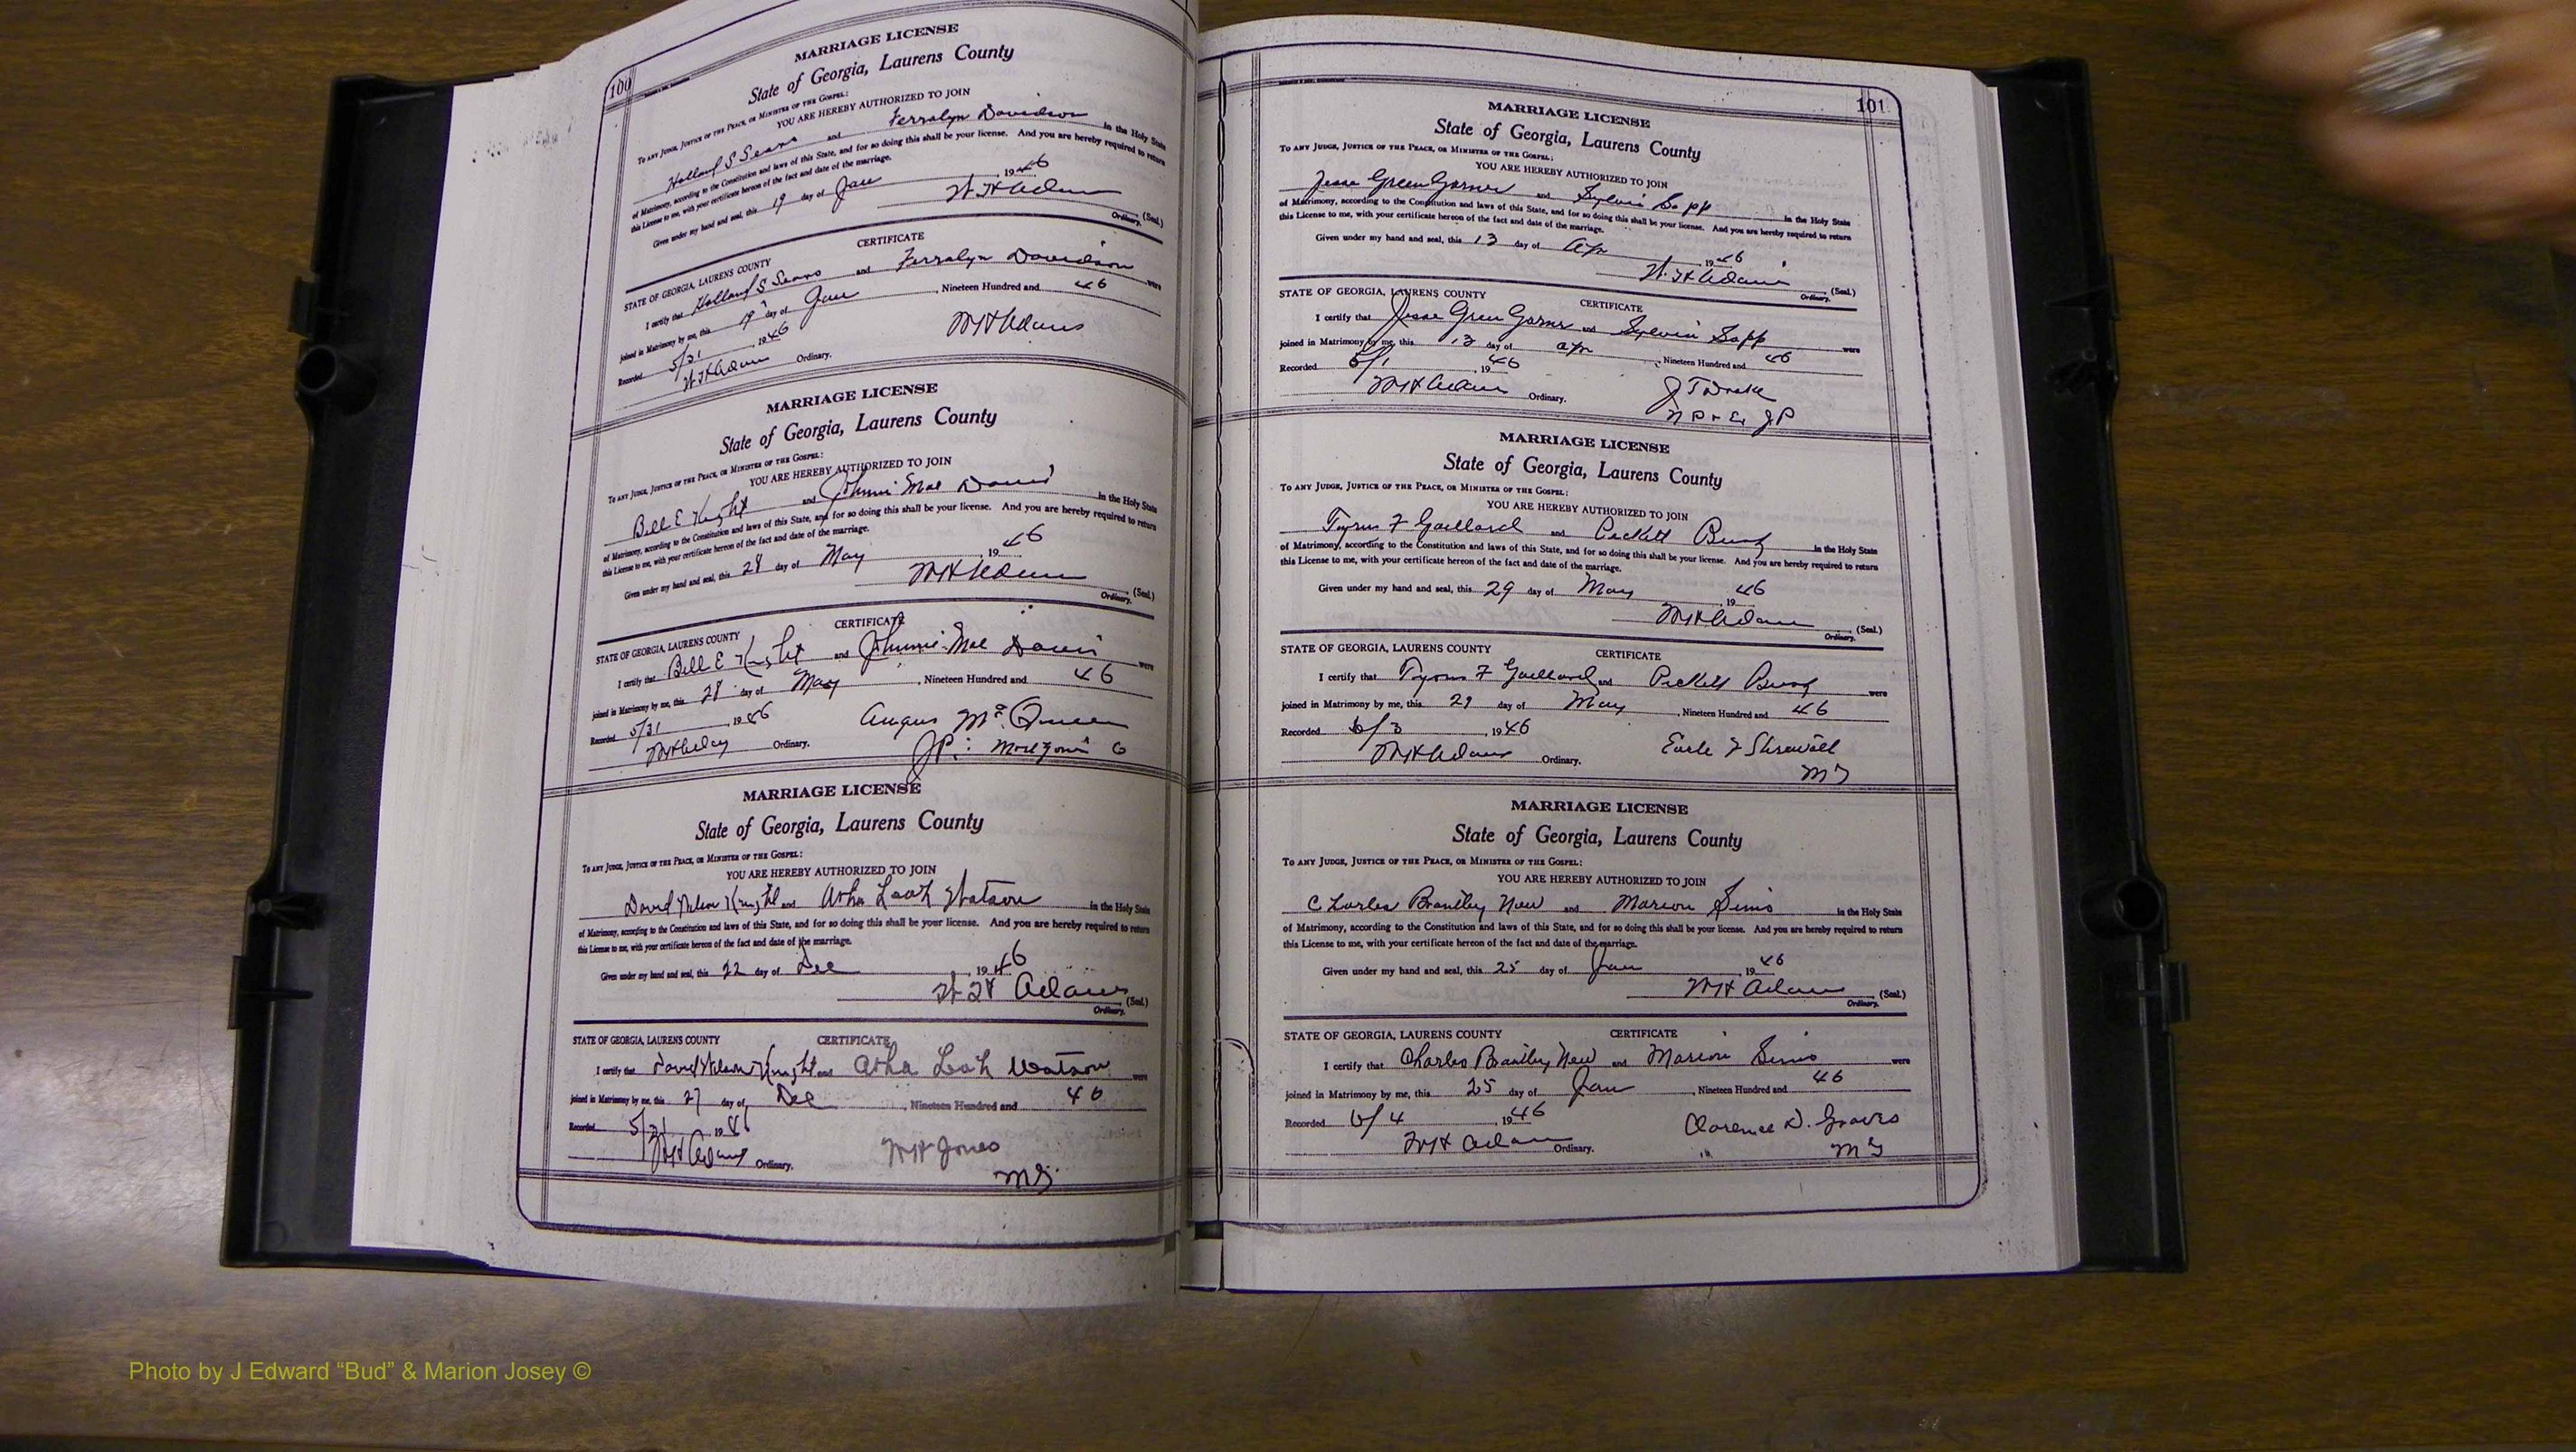 100
MARRIAGE LICENSE
State of Georgia, Laurens County
To any Judge, Justice of the Peace, or Minister of the Gospel:
YOU ARE HEREBY AUTHORIZED TO JOIN
Holland S Sears and Ferralyn Davidson in the Holy State
of Matrimony, according to the Constitution and laws of this State, and for so doing this shall be your license. And you are hereby required to return
this License to me, with your certificate hereon of the fact and date of the marriage.
Given under my hand and seal, this 19 day of Jan , 1946
W H Adams (Seal.)
Ordinary.
CERTIFICATE
STATE OF GEORGIA, LAURENS COUNTY
I certify that Holland S Sears and Ferralyn Davidson were
joined in Matrimony by me, this 19 day of Jan , Nineteen Hundred and 46
Recorded 5/31 , 1946
W H Adams Ordinary. W H Adams
MARRIAGE LICENSE
State of Georgia, Laurens County
To any Judge, Justice of the Peace, or Minister of the Gospel:
YOU ARE HEREBY AUTHORIZED TO JOIN
Bill E Knight and Johnnie Mae Davis in the Holy State
of Matrimony, according to the Constitution and laws of this State, and for so doing this shall be your license. And you are hereby required to return
this License to me, with your certificate hereon of the fact and date of the marriage.
Given under my hand and seal, this 28 day of May , 1946
W H Adams (Seal.)
Ordinary.
CERTIFICATE
STATE OF GEORGIA, LAURENS COUNTY
I certify that Bill E Knight and Johnnie Mae Davis were
joined in Matrimony by me, this 28 day of May , Nineteen Hundred and 46
Recorded 5/31 , 1946 Angus McQueen
Ordinary. JP:
MARRIAGE LICENSE
State of Georgia, Laurens County
To any Judge, Justice of the Peace, or Minister of the Gospel:
YOU ARE HEREBY AUTHORIZED TO JOIN
David Nelson Knight and Atha Leah Watson in the Holy State
of Matrimony, according to the Constitution and laws of this State, and for so doing this shall be your license. And you are hereby required to return
this License to me, with your certificate hereon of the fact and date of the marriage.
Given under my hand and seal, this 22 day of Dec , 1946
W H Adams (Seal.)
Ordinary.
STATE OF GEORGIA, LAURENS COUNTY CERTIFICATE
I certify that David Nelson Knight and Atha Leah Watson were
joined in Matrimony by me, this 27 day of Dec , Nineteen Hundred and 46
Recorded 5/31 1946
W H Adams Ordinary. W H Jones
MG
101
MARRIAGE LICENSE
State of Georgia, Laurens County
To any Judge, Justice of the Peace, or Minister of the Gospel:
YOU ARE HEREBY AUTHORIZED TO JOIN
Jesse Green Garner and Sylvia Sapp in the Holy State
of Matrimony, according to the Constitution and laws of this State, and for so doing this shall be your license. And you are hereby required to return
this License to me, with your certificate hereon of the fact and date of the marriage.
Given under my hand and seal, this 13 day of Apr , 1946
W H Adams (Seal.)
Ordinary.
STATE OF GEORGIA, LAURENS COUNTY CERTIFICATE
I certify that Jesse Green Garner and Sylvia Sapp were
joined in Matrimony by me, this 13 day of Apr , Nineteen Hundred and 46
Recorded 6/1 , 1946
W H Adams Ordinary. J T Drake
N P & Ex JP
MARRIAGE LICENSE
State of Georgia, Laurens County
To any Judge, Justice of the Peace, or Minister of the Gospel:
YOU ARE HEREBY AUTHORIZED TO JOIN
Tyrus F Gaillard and Pickett Bush in the Holy State
of Matrimony, according to the Constitution and laws of this State, and for so doing this shall be your license. And you are hereby required to return
this License to me, with your certificate hereon of the fact and date of the marriage.
Given under my hand and seal, this 29 day of May , 1946
W H Adams (Seal.)
Ordinary.
STATE OF GEORGIA, LAURENS COUNTY CERTIFICATE
I certify that Tyrus F Gaillard and Pickett Bush were
joined in Matrimony by me, this 29 day of May , Nineteen Hundred and 46
Recorded 6/3 , 1946
W H Adams Ordinary. Earle F Stirewalt
MG
MARRIAGE LICENSE
State of Georgia, Laurens County
To any Judge, Justice of the Peace, or Minister of the Gospel:
YOU ARE HEREBY AUTHORIZED TO JOIN
Charles Brantley New and Marion Sims in the Holy State
of Matrimony, according to the Constitution and laws of this State, and for so doing this shall be your license. And you are hereby required to return
this License to me, with your certificate hereon of the fact and date of the marriage.
Given under my hand and seal, this 25 day of Jan , 1946
W H Adams (Seal.)
Ordinary.
STATE OF GEORGIA, LAURENS COUNTY CERTIFICATE
I certify that Charles Brantley New and Marion Sims were
joined in Matrimony by me, this 25 day of Jan , Nineteen Hundred and 46
Recorded 6/4 , 1946 Clarence D. Graves
W H Adams Ordinary. MG
Photo by J Edward “Bud” & Marion Josey ©